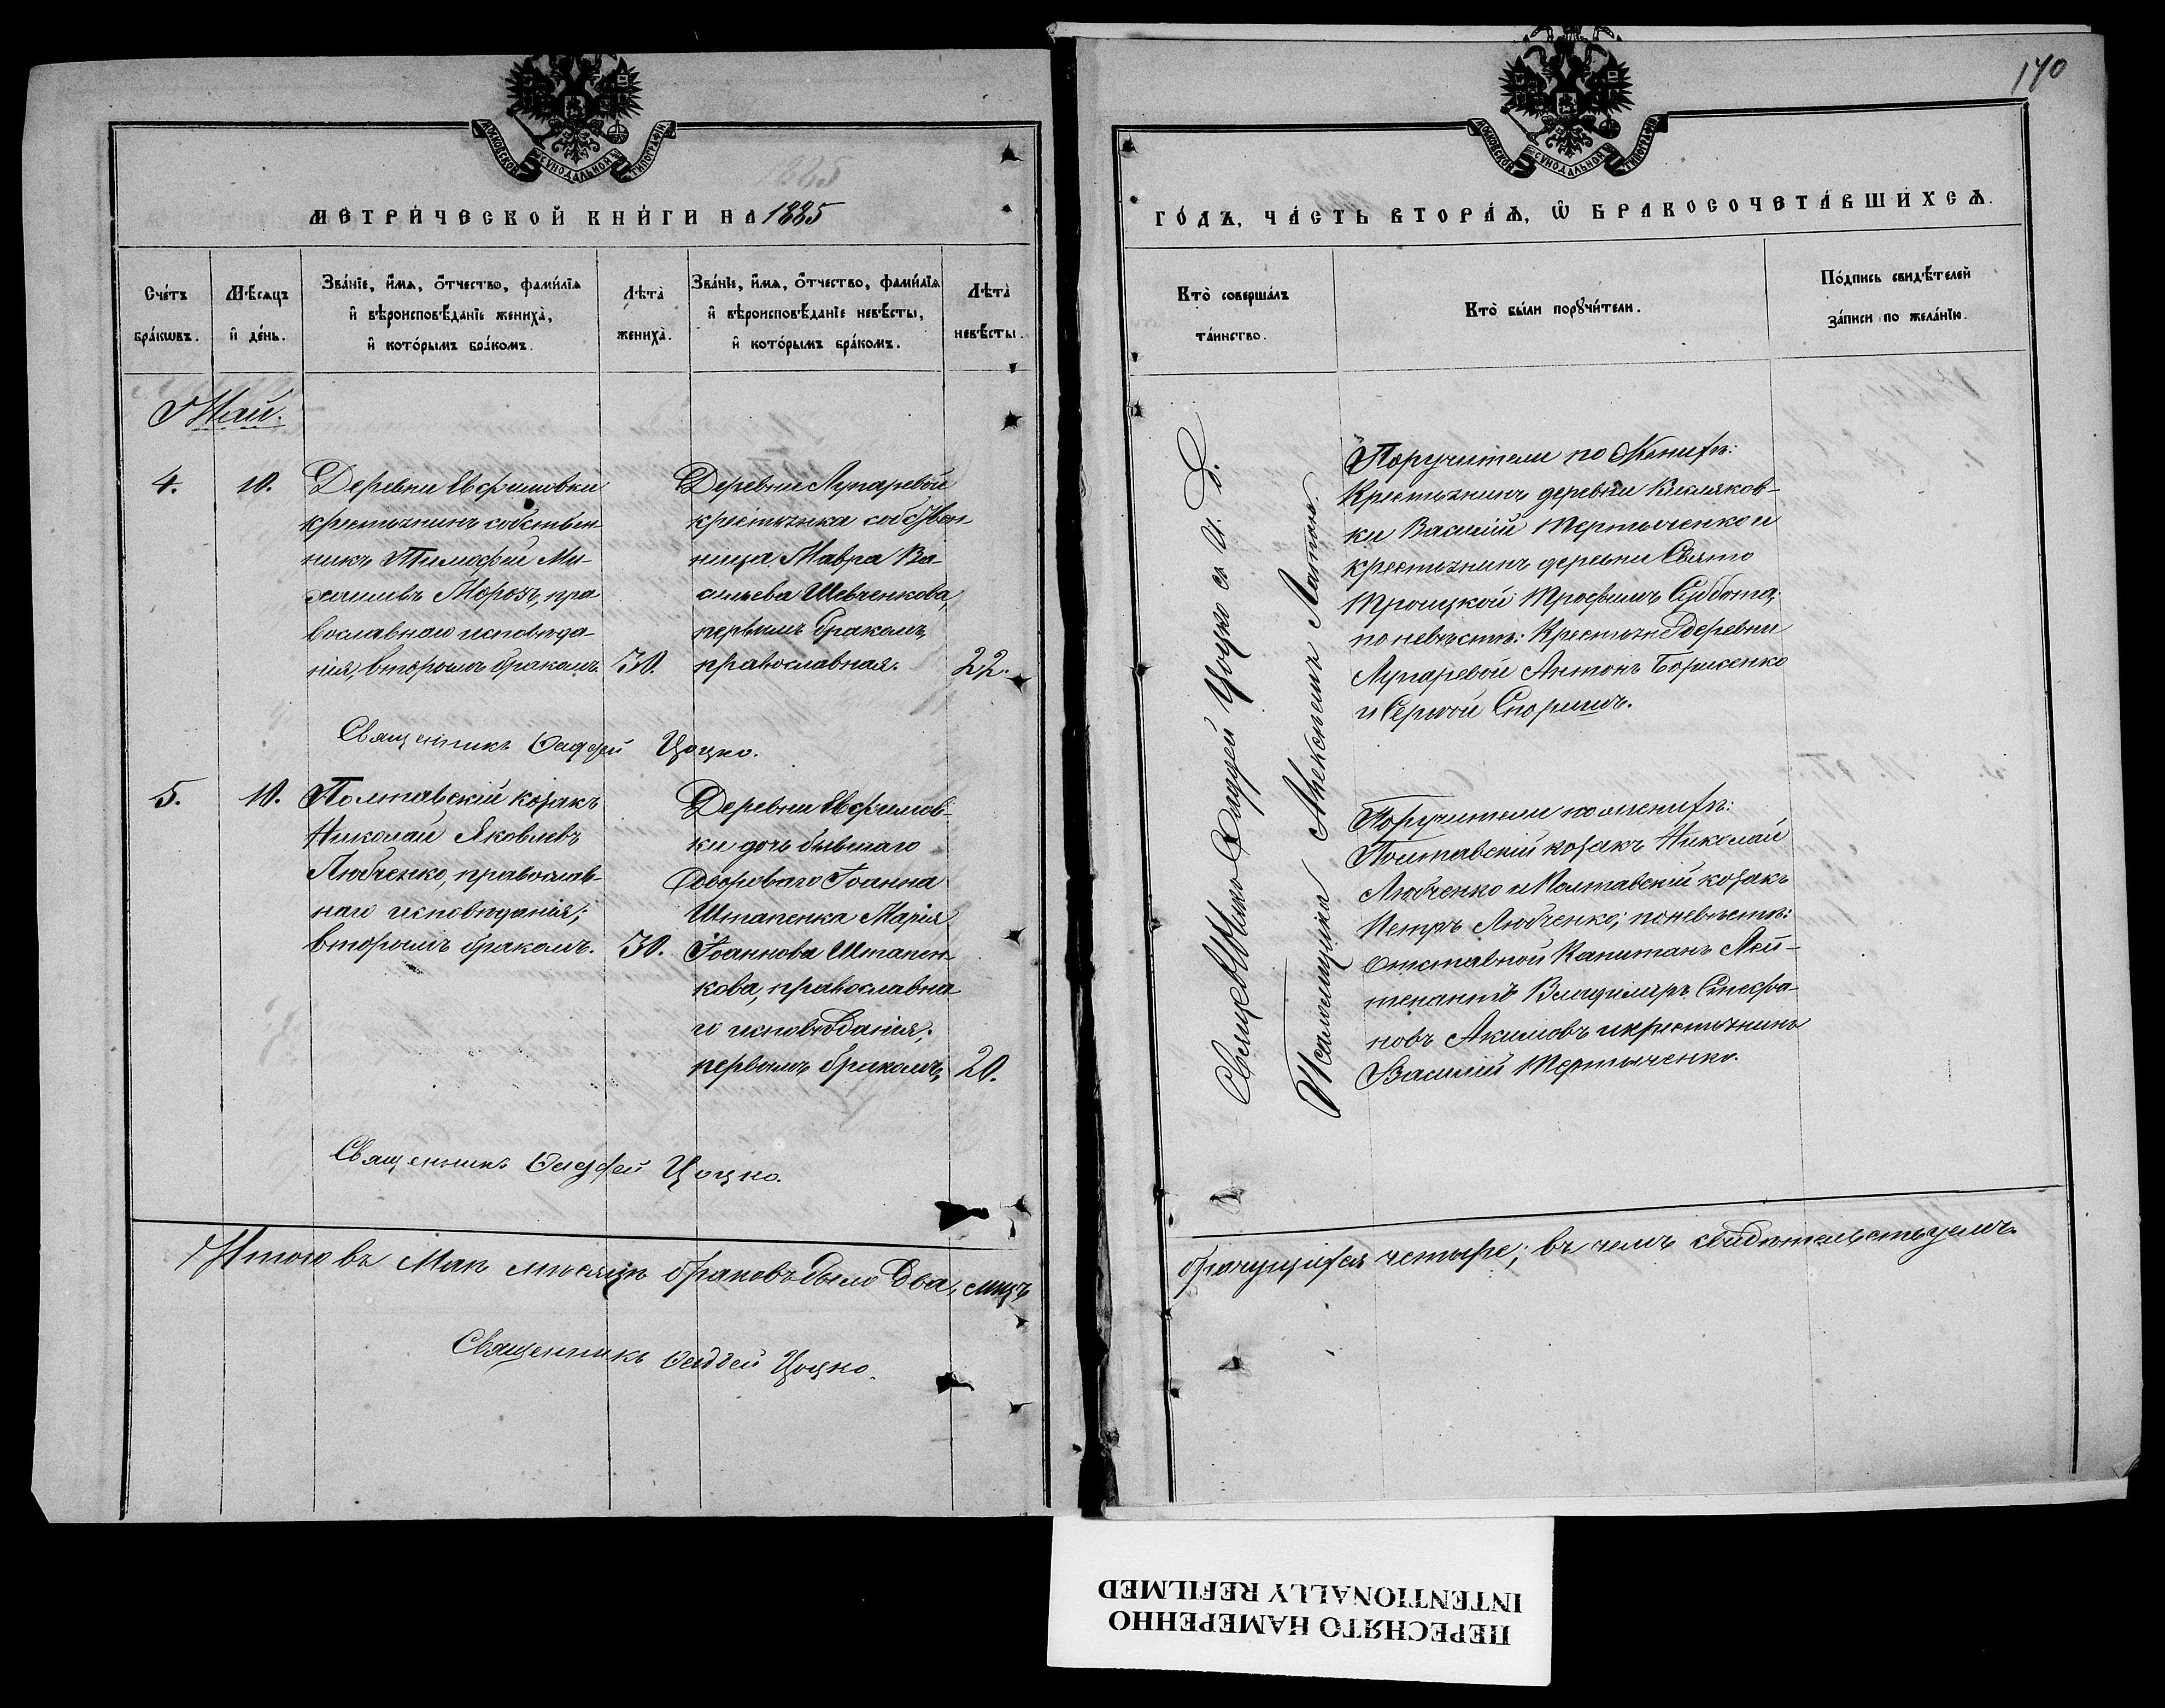 140
МОСКОВСКОЙ СУНОДАЛЬНОЙ ТИПОГРАФІИ
МЕТРИ́ЧЕСКОЙ КНИ́ГИ НА 1885
Сче́тъ бра́кѡвъ.
Мѣ́сѧцъ и҆ де́нь.
Зва́нїе, и҆́мѧ, ѻ҆́тчество, фами́лїѧ
и҆ вѣроисповѣ́данїе жениха̀,
и҆ кото́рымъ бра́комъ.
Лѣта̀ жениха̀.
Зва́нїе, и҆́мѧ, ѻ҆́тчество, фами́лїѧ
и҆ вѣроисповѣ́данїе невѣ́сты,
и҆ кото́рымъ бра́комъ.
Лѣта̀ невѣ́сты.
Май.
4.
10.
Деревни Евфимовки
крестьянинъ собствен-
никъ Тимофей Ми-
хаилевъ Морозъ, пра
вославнаго исповѣда
нія, вторымъ бракомъ.
30.
Деревни Лупаревой
крестьянка собствен-
ница Мавра Ва-
сильева Шевченкова,
первымъ бракомъ,
православная.
22.
Священникъ Ѳаддей Цоцко.
5.
10.
Полтавскій козакъ
Николай Яковлевъ
Любченко, православ-
наго исповѣданія;
вторымъ бракомъ.
30.
Деревни Евфимов-
ки дочь бывшаго
Дворового Іоанна
Штапенка Марія
Іоаннова Штапен-
кова, православна
го исповѣданія;
первымъ бракомъ,
20.
Священникъ Ѳаддей Цоцко.
Итого въ Маѣ мѣсяцѣ браковъ было два, лицъ
Священникъ Ѳаддей Цоцко.
МОСКОВСКОЙ СУНОДАЛЬНОЙ ТИПОГРАФІИ
ГО́ДЪ, ЧА́СТЬ ВТОРА́Ѧ, Ѡ҆ БРАКОСОЧЕТА́ВШИХСѦ.
Кто̀ соверша́лъ та́инство.
Кто̀ бы́ли порꙋчи́тели.
По́дпись свидѣ́телей
за́писи по жела́нїю.
Ѳаддей Цоцко съ И. Д.
Псаломщика Алексѣемъ
Поручители по Женихѣ:
Крестьянинъ деревни Кисляков-
ки Василій Тертыченко и
крестьянинъ деревни Свято
Троицкой Трофимъ Суббота;
по невѣстѣ: Крестьяне деревни
Лупаревой Антонъ Борисенко
и Сергѣй Споришъ.
Поручители по женихѣ:
Полтавскій козакъ Николай
Любченко и Полтавскій козакъ
Петръ Любченко; по невѣстѣ:
Отставной Капитанъ Лей-
тенантъ Владиміръ Стефа-
новъ Акимовъ и крестьянинъ
Василій Тертыченко.
брачущихся четыре; въ чемъ свидѣтельствуемъ.
ПЕРЕСНЯТО НАМЕРЕННО
INTENTIONALLY REFILMED